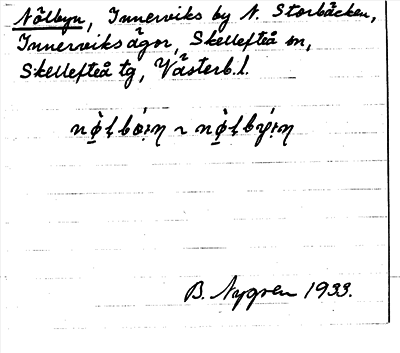 Nölbyn, Innerviks by N. Storbäcken,
Innerviksägor, Skellefteå sn,
Skellefteå tg, Västerb.l.
B. Nygren 1933.